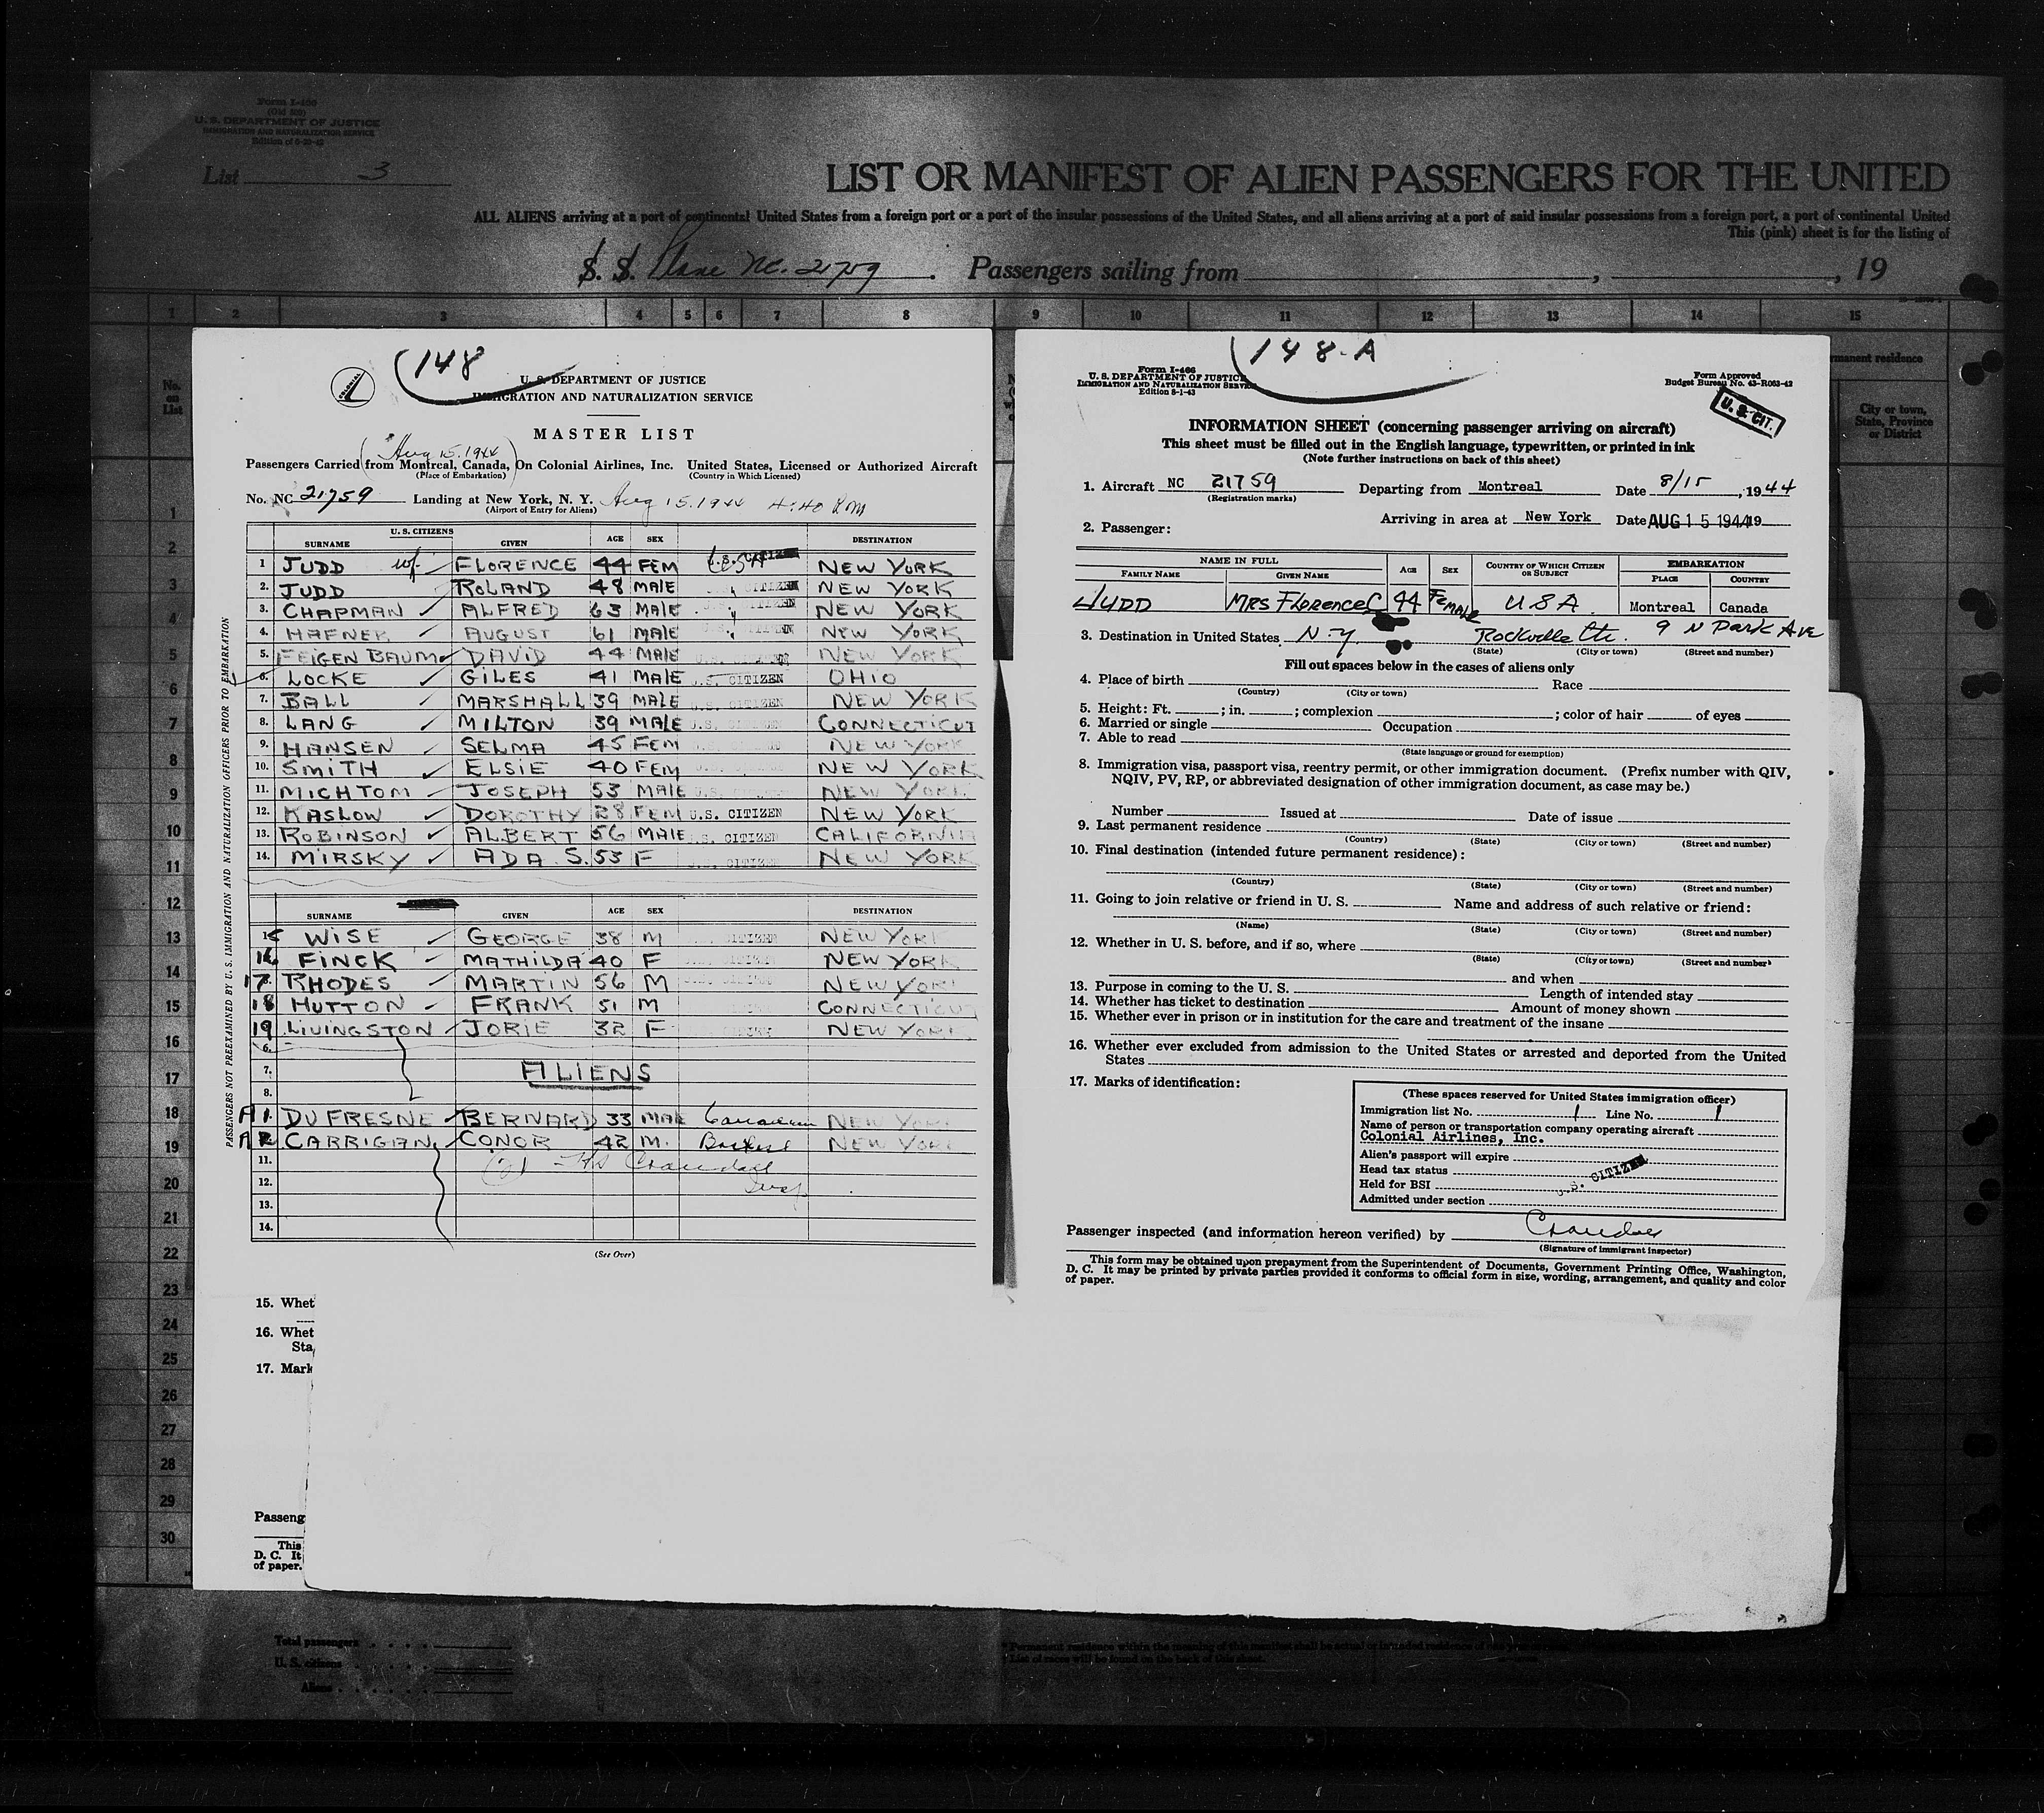 Form I-400
(Old 500)
U. S. DEPARTMENT OF JUSTICE
IMMIGRATION AND NATURALIZATION SERVICE
List 3
LIST OR MANIFEST OF ALIEN PASSENGERS FOR THE UNITED
ALL ALIENS arriving at a port of continental United States from a foreign port or a port of the insular possessions of the United States, and all aliens arriving at a port of said insular possessions from a foreign port, a port of continental United
This (pink) sheet is for the listing of
S. S. Plane NC. 21759 . Passengers sailing from , , 19
1 2 3 4 5 6 7 8 9 10 11 12 13 14 15
No. on List
manent residence
City or town, State, Province or District
148
COLONIAL
U. S. DEPARTMENT OF JUSTICE
IMMIGRATION AND NATURALIZATION SERVICE
MASTER LIST
Aug 15. 1944
Passengers Carried from Montreal, Canada, On Colonial Airlines, Inc. United States, Licensed or Authorized Aircraft
(Place of Embarkation) (Country in Which Licensed)
No. NC 21759 Landing at New York, N. Y. Aug 15. 1944 4:40 PM
(Airport of Entry for Aliens)
U. S. CITIZENS
SURNAME GIVEN AGE SEX DESTINATION
1 JUDD wf. FLORENCE 44 FEM U.S. CITIZEN NEW YORK
2. JUDD ROLAND 48 MALE CITIZEN NEW YORK
3. CHAPMAN ALFRED 63 MALE CITIZEN NEW YORK
4. HAFNER AUGUST 61 MALE NEW YORK
5. FEIGENBAUM DAVID 44 MALE U.S. CITIZEN NEW YORK
6. LOCKE GILES 41 MALE U.S. CITIZEN OHIO
7. BALL MARSHALL 39 MALE U.S. CITIZEN NEW YORK
8. LANG MILTON 39 MALE CONNECTICUT
9. HANSEN SELMA 45 FEM NEW YORK
10. SMITH ELSIE 40 FEM NEW YORK
11. MICHTOM JOSEPH 53 MALE NEW YORK
12. KASLOW DOROTHY 28 FEM U.S. CITIZEN NEW YORK
13. ROBINSON ALBERT 56 MALE U.S. CITIZEN CALIFORNIA
14. MIRSKY ADA S. 53 F U.S. CITIZEN NEW YORK
SURNAME GIVEN AGE SEX DESTINATION
15 WISE GEORGE 38 M CITIZEN NEW YORK
16 FINCK MATHILDA 40 F NEW YORK
17 RHODES MARTIN 56 M NEW YORK
18 HUTTON FRANK 51 M CONNECTICUT
19 LIVINGSTON JORIE 32 F NEW YORK
6.
7. ALIENS
8.
A 1. DUFRESNE BERNARD 33 MALE Canadian NEW YORK
A 2 CARRIGAN CONOR 42 M. British NEW YORK
11. (21) Crandall
12. Insp.
13.
14.
(See Over)
PASSENGERS NOT PREEXAMINED BY U. S. IMMIGRATION AND NATURALIZATION OFFICERS PRIOR TO EMBARKATION
15. Whet
16. Whet
Sta
17. Mark
Passeng
This
D. C. It
of paper.
1
2
3
4
5
6
7
8
9
10
11
12
13
14
15
16
17
18
19
20
21
22
23
24
25
26
27
28
29
30
148-A
Form I-466
U. S. DEPARTMENT OF JUSTICE
IMMIGRATION AND NATURALIZATION SERVICE
Edition 8-1-43
Form Approved
Budget Bureau No. 43-R063-42
U. S. CIT.
INFORMATION SHEET (concerning passenger arriving on aircraft)
This sheet must be filled out in the English language, typewritten, or printed in ink
(Note further instructions on back of this sheet)
1. Aircraft NC 21759 Departing from Montreal Date 8/15, 1944
(Registration marks)
Arriving in area at New York Date AUG 15 1944 19
2. Passenger:
NAME IN FULL AGE SEX COUNTRY OF WHICH CITIZEN OR SUBJECT EMBARKATION
FAMILY NAME GIVEN NAME PLACE COUNTRY
JUDD MRS FLORENCE C 44 FEMALE USA. Montreal Canada
3. Destination in United States N.Y Rockville Ctr. 9 N PARK AVE
(State) (City or town) (Street and number)
Fill out spaces below in the cases of aliens only
4. Place of birth Race
(Country) (City or town)
5. Height: Ft. ; in. ; complexion ; color of hair of eyes
6. Married or single Occupation
7. Able to read
(State language or ground for exemption)
8. Immigration visa, passport visa, reentry permit, or other immigration document. (Prefix number with QIV,
NQIV, PV, RP, or abbreviated designation of other immigration document, as case may be.)
Number Issued at Date of issue
9. Last permanent residence
(Country) (State) (City or town) (Street and number)
10. Final destination (intended future permanent residence):
(Country) (State) (City or town) (Street and number)
11. Going to join relative or friend in U. S. Name and address of such relative or friend:
(Name) (State) (City or town) (Street and number)
12. Whether in U. S. before, and if so, where
(State) (City or town) (Street and number)
and when
13. Purpose in coming to the U. S. Length of intended stay
14. Whether has ticket to destination Amount of money shown
15. Whether ever in prison or in institution for the care and treatment of the insane
16. Whether ever excluded from admission to the United States or arrested and deported from the United
States
17. Marks of identification:
(These spaces reserved for United States immigration officer)
Immigration list No. 1 Line No. 1
Name of person or transportation company operating aircraft
Colonial Airlines, Inc.
Alien's passport will expire
Head tax status
Held for BSI U.S. CITIZEN
Admitted under section
Passenger inspected (and information hereon verified) by Crandall
(Signature of immigrant inspector)
This form may be obtained upon prepayment from the Superintendent of Documents, Government Printing Office, Washington,
D. C. It may be printed by private parties provided it conforms to official form in size, wording, arrangement, and quality and color
of paper.
Total passengers
U. S. citizens
Aliens